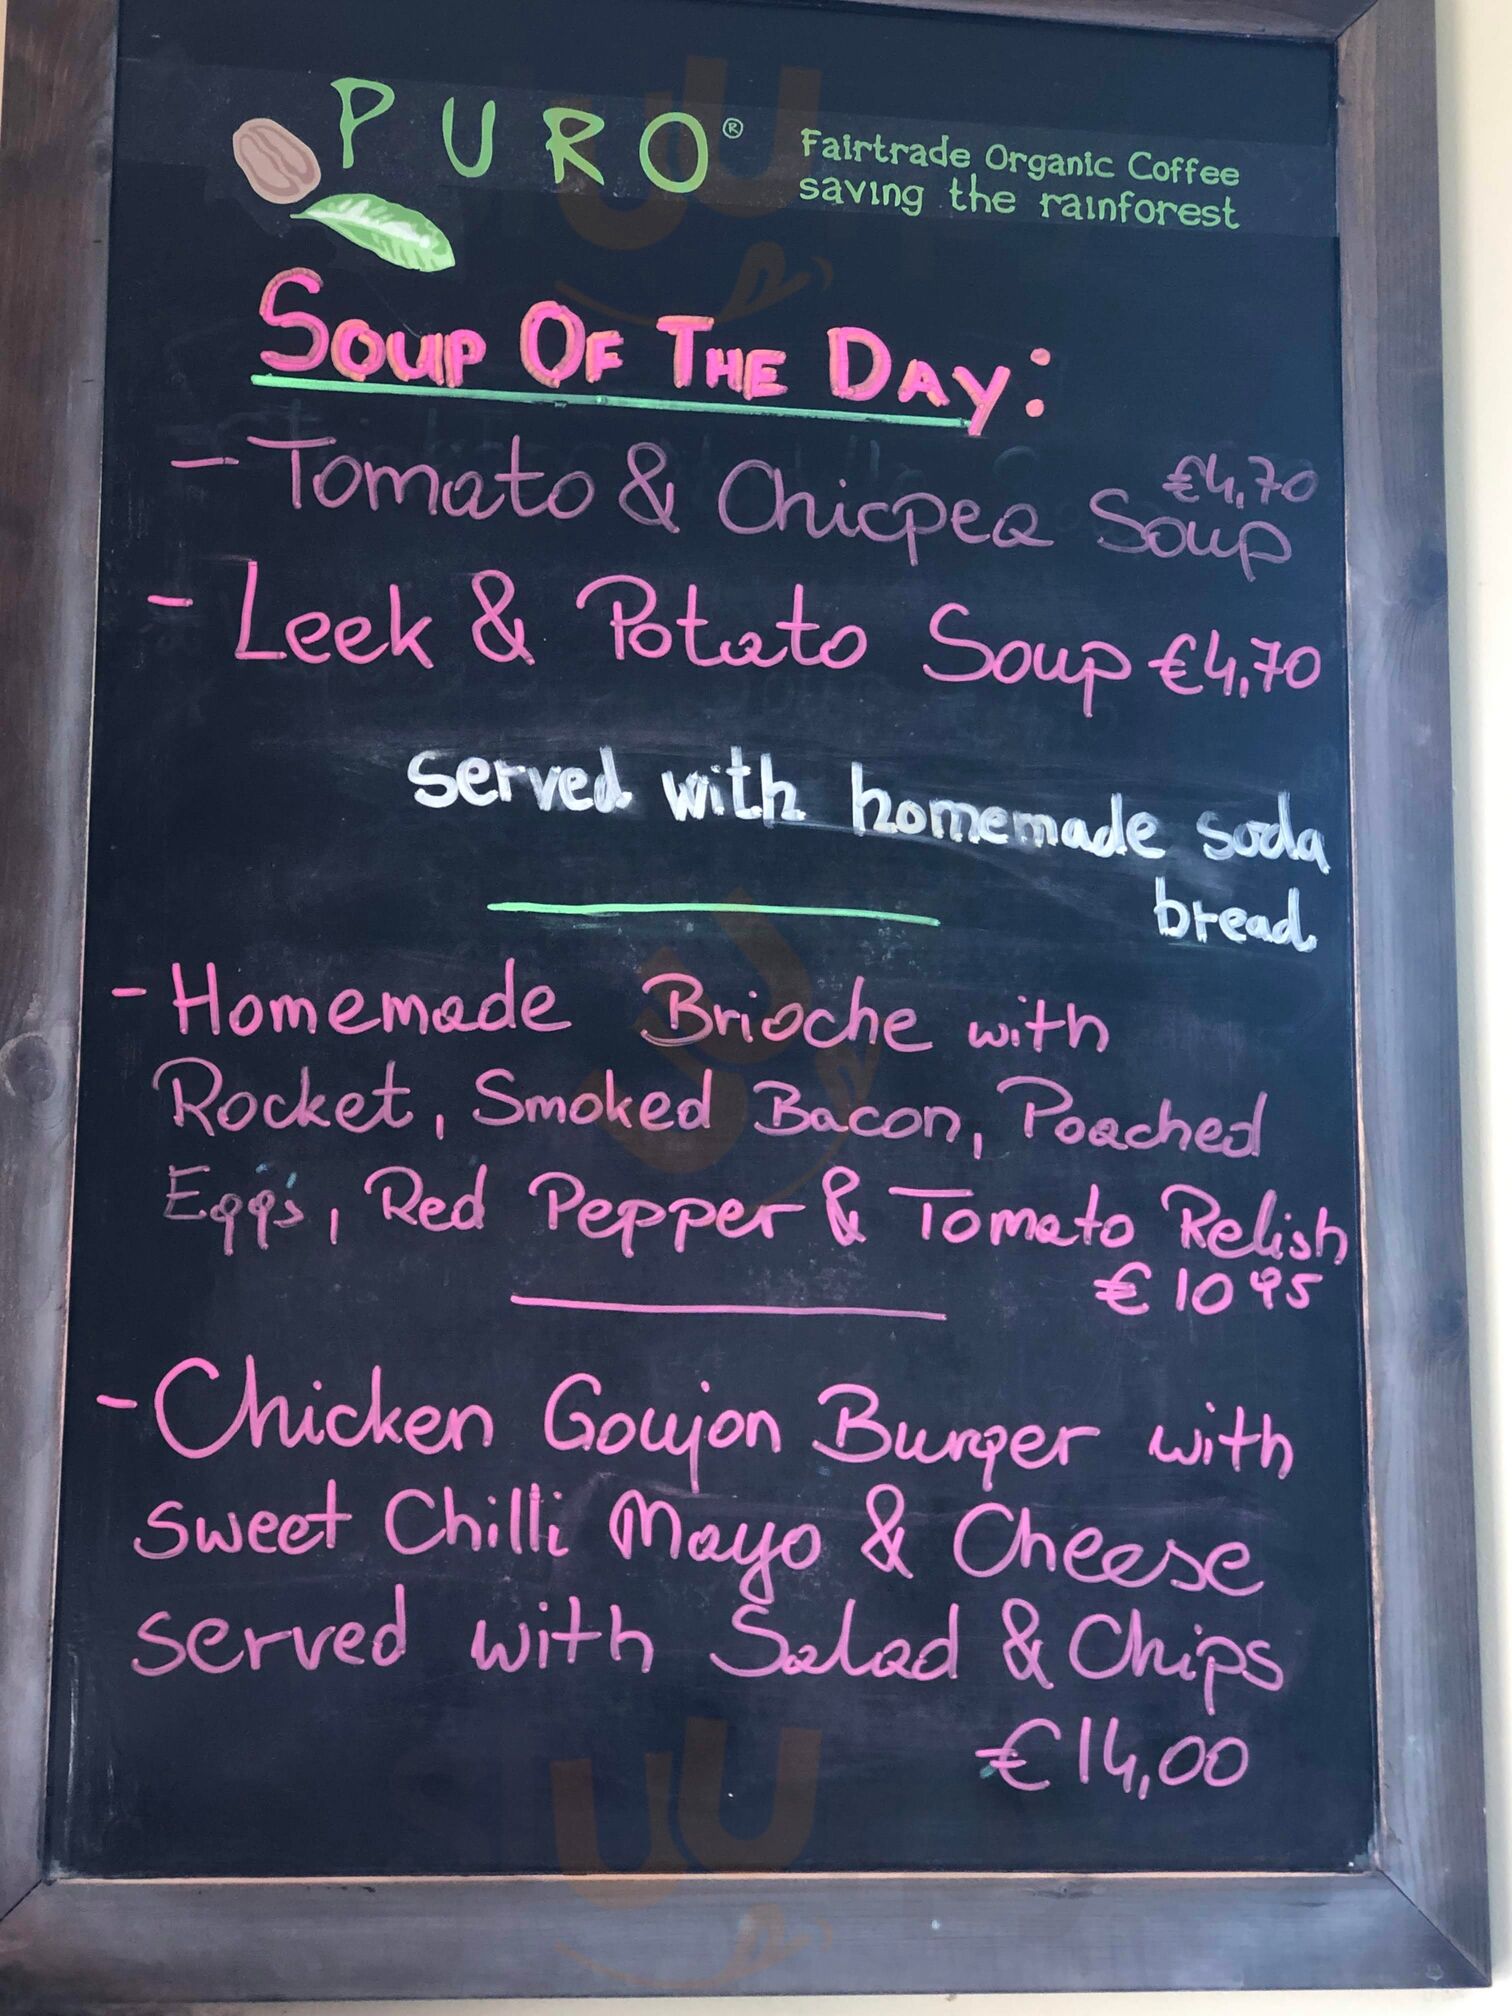 PURO®
Fairtrade Organic Coffee
saving the rainforest
Soup Of The Day:
- Tomato & Chicpea Soup €4,70
- Leek & Potato Soup €4,70
served with homemade soda
bread
- Homemade Brioche with
Rocket, Smoked Bacon, Poached
Eggs, Red Pepper & Tomato Relish
€10 95
- Chicken Goujon Burger with
sweet Chilli Mayo & Cheese
served with Salad & Chips
€14,00